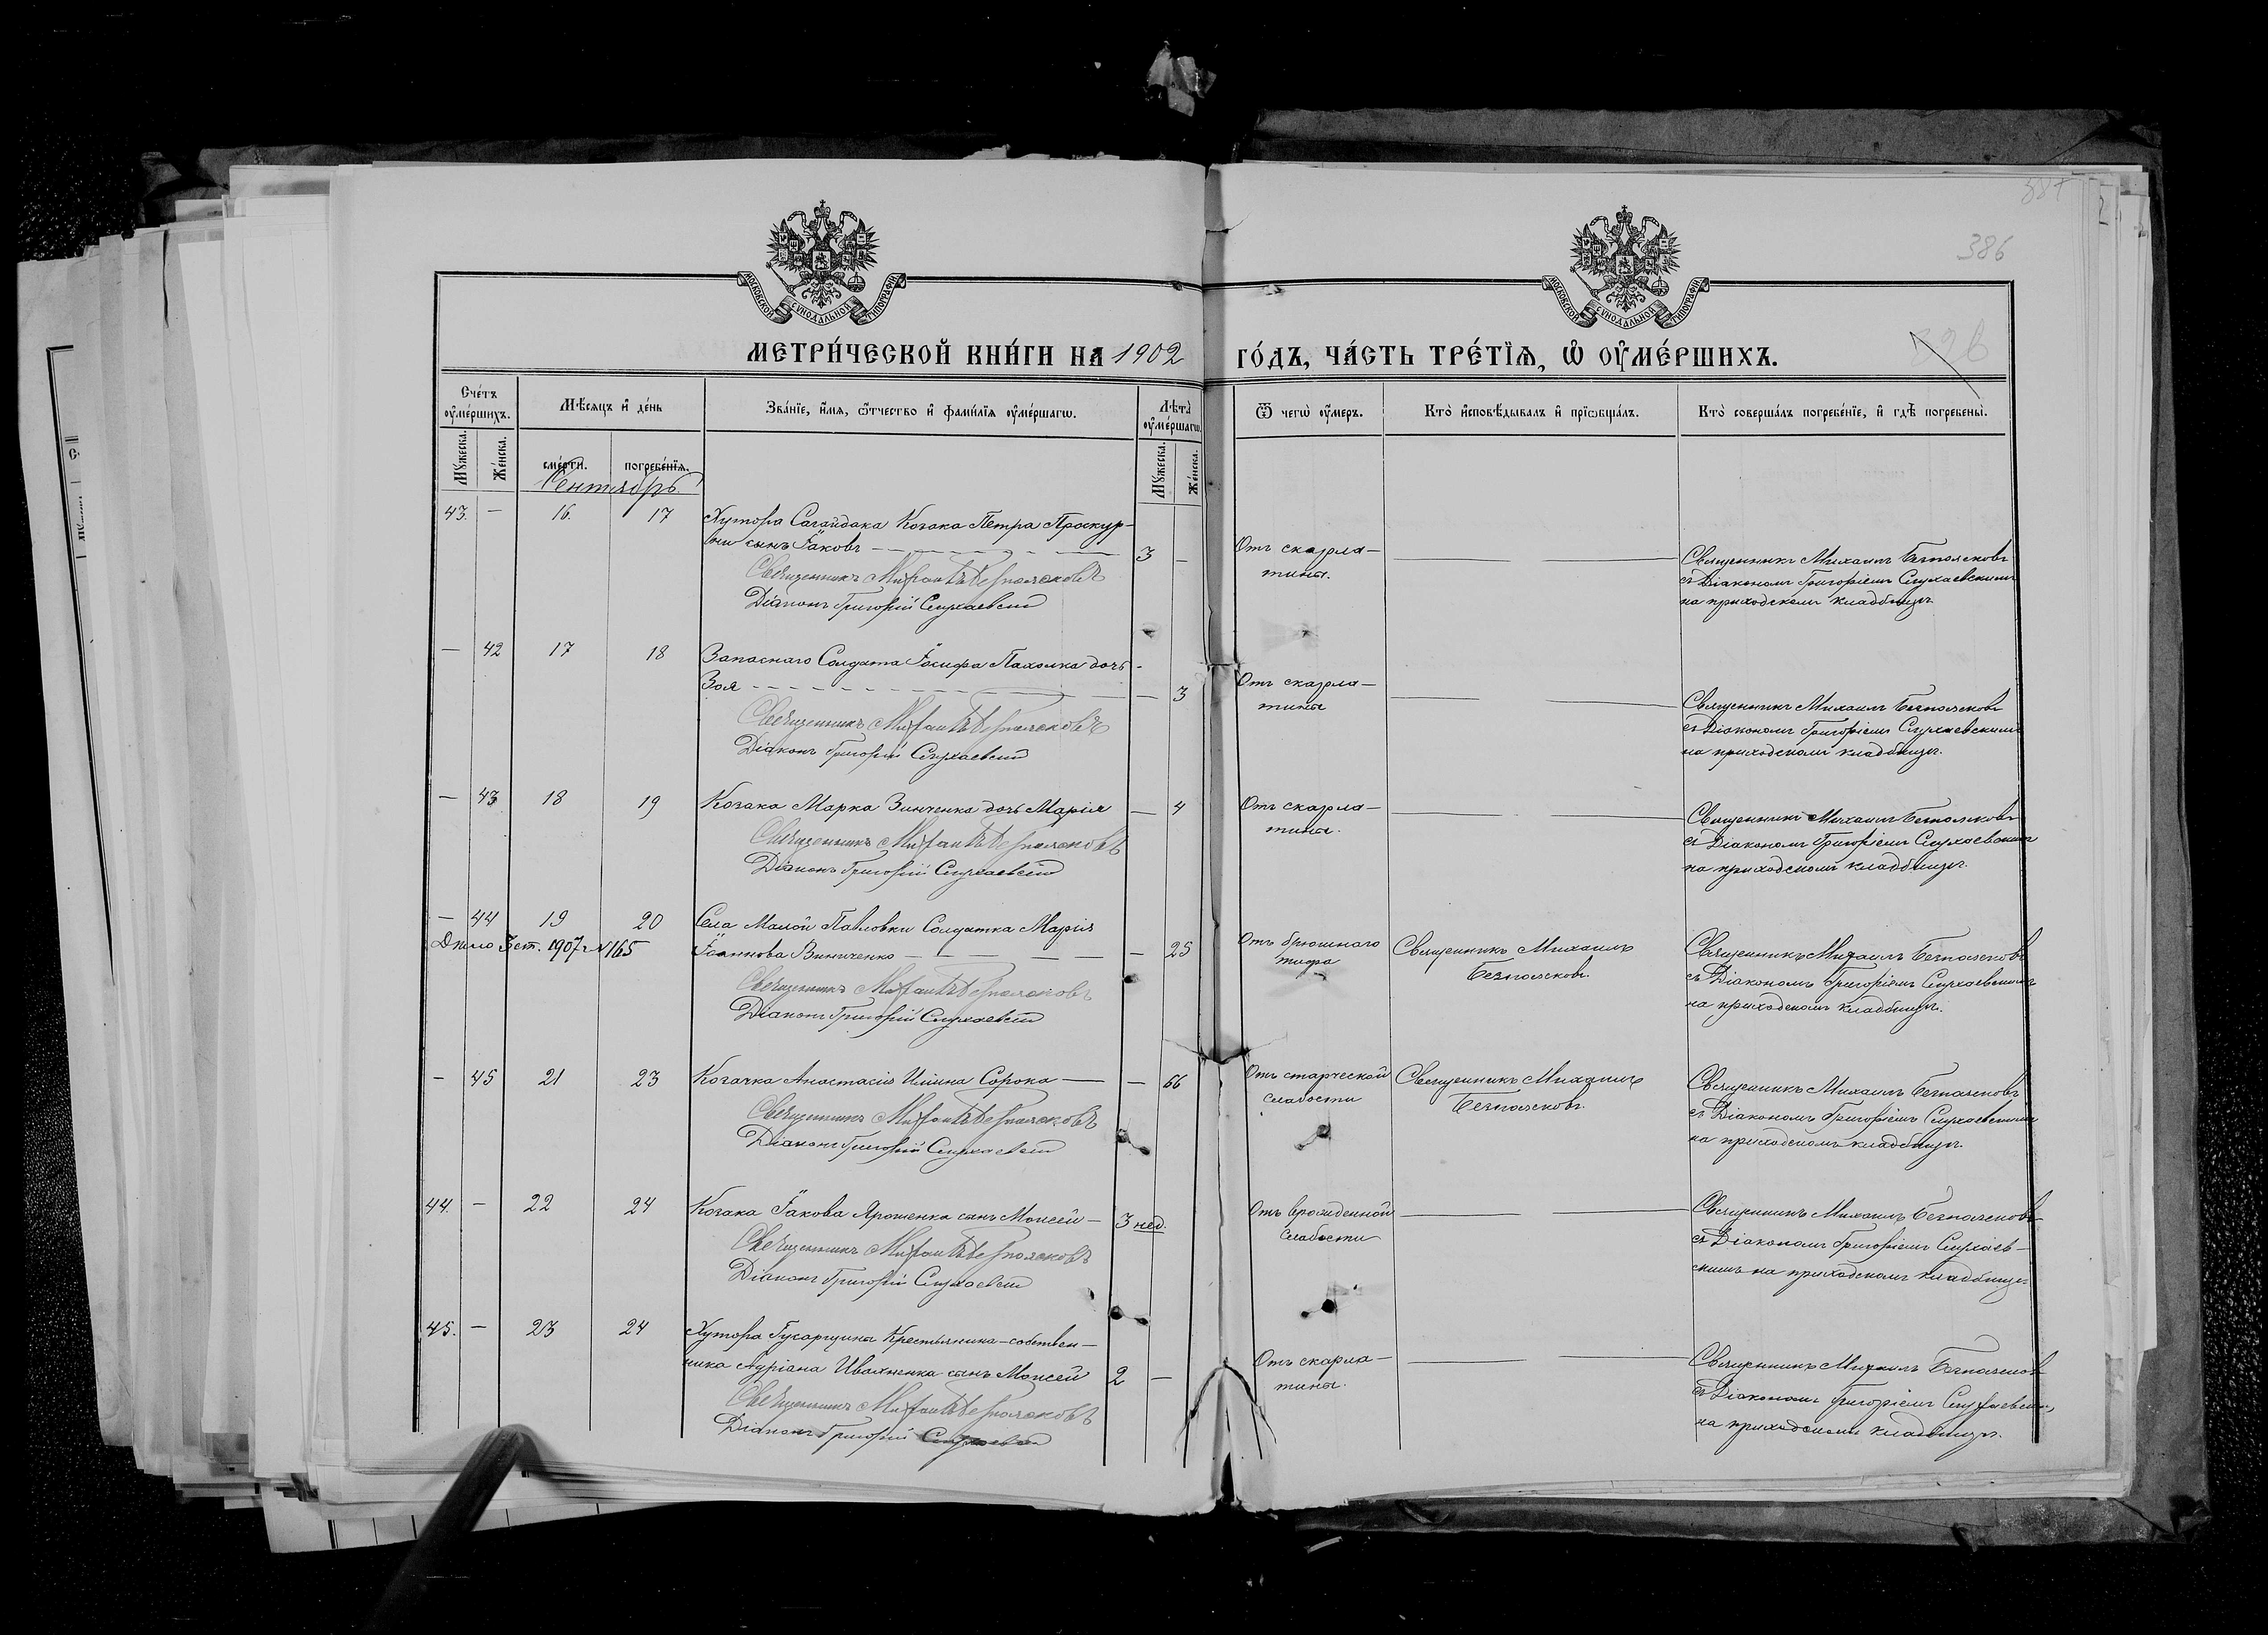 387
386
МОСКОВСКОЙ СѴНОДАЛЬНОЙ ТИПОГРАФІИ
МОСКОВСКОЙ СѴНОДАЛЬНОЙ ТИПОГРАФІИ
МЕТРИ́ЧЕСКОЙ КНИ́ГИ НА 1902
ГО́ДЪ, ЧА́СТЬ ТРЕ́ТЇѦ, Ѡ҆ ОУ҆МЕ́РШИХЪ.
Сче́тъ оу҆ме́ршихъ.
Мѣ́сяцъ и҆ де́нь
Зва́нїе, и҆́мѧ, ѻ҆́тчество и҆ фами́лїѧ оу҆ме́ршагѡ.
Лѣ̑та̀ оу҆ме́ршагѡ.
Ѿ чегѡ̀ оу҆́меръ.
Кто̀ и҆сповѣ́дывалъ и҆ прїѡбща́лъ.
Кто̀ соверша́лъ погребе́нїе, и҆ гдѣ̀ погребены̀.
Мꙋ́жеска.
Же́нска.
сме́рти.
погребе́нїѧ.
Мꙋ́жеска.
Же́нска.
Сентябрь
43. — 16. 17 Хутора Сагайдака Козака Петра Проскур-
ни сынъ Іаковъ 3 —
Священникъ Михаилъ Безпоясковъ
Діаконъ Григорій Слухаевскій
Отъ скарла-
тины.
Священникъ Михаилъ Безпоясковъ
съ Діакономъ Григоріемъ Слухаевскимъ
на приходскомъ кладбищѣ.
— 42 17 18 Запаснаго Солдата Іосифа Пахолка дочь
Зоя — 3
Священникъ Михаилъ Безпоясковъ
Діаконъ Григорій Слухаевскій
Отъ скарла-
тины
Священникъ Михаилъ Безпоясковъ
съ Діакономъ Григоріемъ Слухаевскимъ
на приходскомъ кладбищѣ.
— 43 18 19 Козака Марка Зинченка дочь Марія — 4
Священникъ Михаилъ Безпоясковъ
Діаконъ Григорій Слухаевскій
Отъ скарла-
тины.
Священникъ Михаилъ Безпоясковъ
съ Діакономъ Григоріемъ Слухаевскимъ
на приходскомъ кладбищѣ.
— 44 19 20 Села Малой Павловки Солдатка Марія
Дѣло 3 ст. 1907 г. № 165
Іоаннова Винниченко — 25
Священникъ Михаилъ Безпоясковъ
Діаконъ Григорій Слухаевскій
Отъ брюшнаго
тифа
Священникъ Михаилъ
Безпоясковъ.
Священникъ Михаилъ Безпоясковъ
съ Діакономъ Григоріемъ Слухаевскимъ
на приходскомъ кладбищѣ.
— 45 21 23 Козачка Анастасія Илліина Сорока — 66
Священникъ Михаилъ Безпоясковъ
Діаконъ Григорій Слухаевскій
Отъ старческой
слабости
Священникъ Михаилъ
Безпоясковъ.
Священникъ Михаилъ Безпоясковъ
съ Діакономъ Григоріемъ Слухаевскимъ
на приходскомъ кладбищѣ.
44. — 22 24 Козака Іакова Ярошенка сынъ Моисей — 3 нед.
Священникъ Михаилъ Безпоясковъ
Діаконъ Григорій Слухаевскій
Отъ врожденной
слабости
Священникъ Михаилъ Безпоясковъ
съ Діакономъ Григоріемъ Слухаев-
скимъ на приходскомъ кладбищѣ
45. — 23 24 Хутора Гусарщины Крестьянина-собствен-
ника Адріана Ивахненка сынъ Моисей 2 —
Священникъ Михаилъ Безпоясковъ
Діаконъ Григорій Слухаевскій
Отъ скарла-
тины.
Священникъ Михаилъ Безпоясковъ
съ Діакономъ Григоріемъ Слухаевскимъ
на приходскомъ кладбищѣ.